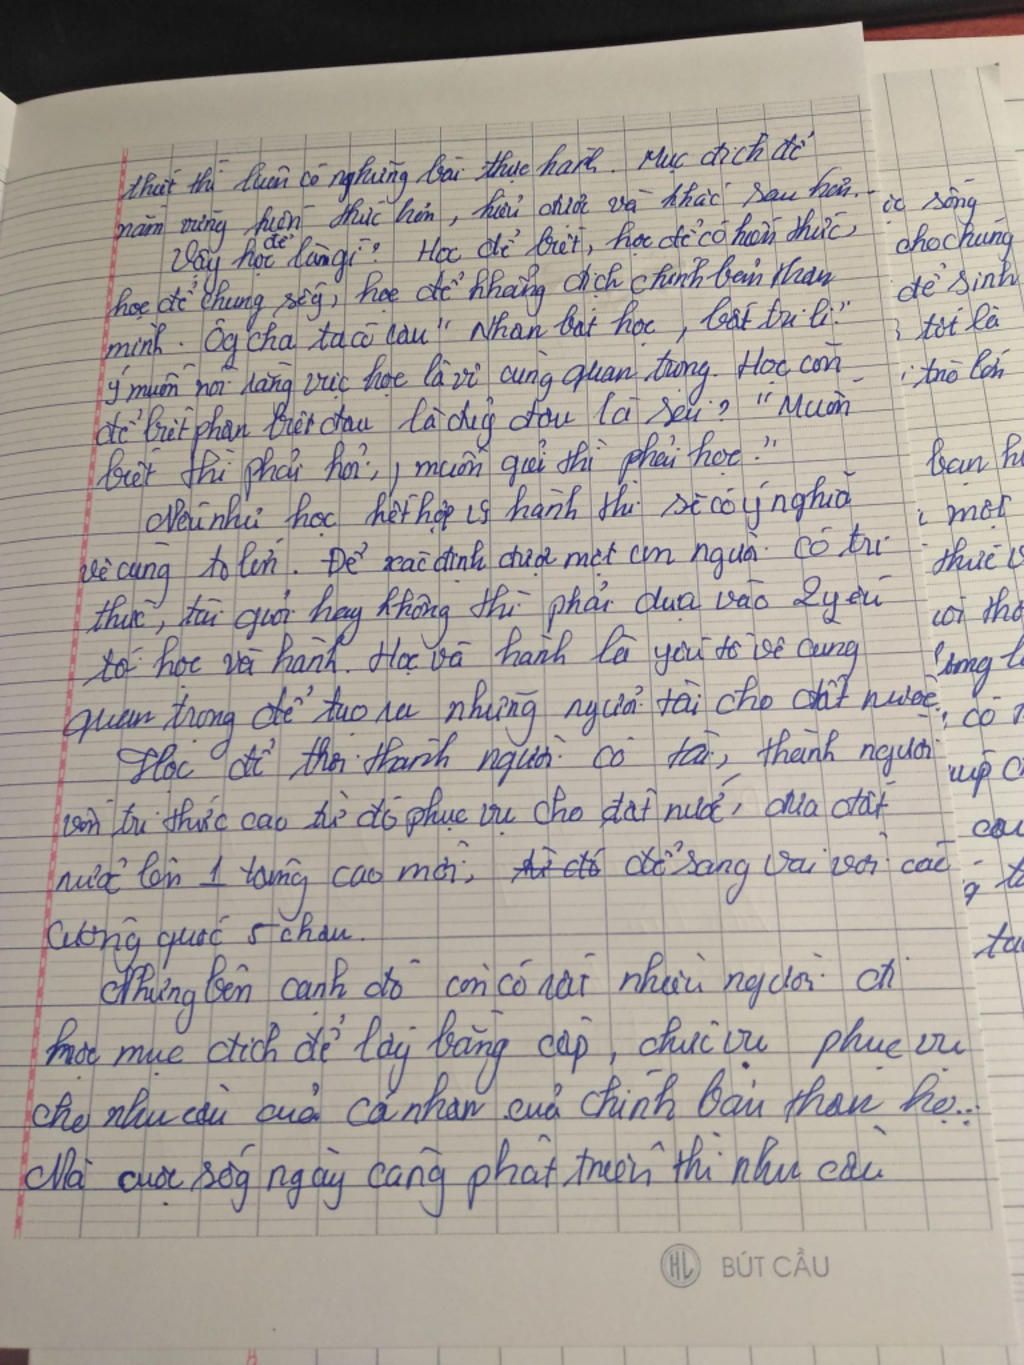 thuết thì luôn có nghững bài thực hành. Mục đích để
nắm vững kiến thức hơn, hiểu được và khắc sau hơn.
Vậy học để làm gì? Học để biết, học để có kiến thức,
học để chung sốg, học để khẳng định chính bản thân
mình. Ôg cha ta có câu " Nhân bất học, bất tri lí."
Ý muốn nói rằng việc học là vô cùng quan trọng. Học còn
để biết phân biệt đâu là đúg đâu là sai? "Muốn
biết thì phải hỏi, muốn giỏi thì phải học."
Nếu như học kết hợp vs hành thì sẽ có ý nghĩa
vô cùng to lớn. Để xác định được một cn người có tri
thức, tài giỏi hay không thì phải dựa vào 2 yếu
tố học và hành. Học và hành là yếu tố vô cùng
quan trọng để tạo ra những người tài cho đất nước.
Học để thời thành người có tài, thành người
vốn tri thức cao từ đó phục vụ cho đất nước, đưa đất
nước lên 1 tầng cao mới, từ đó để sang vai với các
cường quốc 5 châu.
Nhưng bên cạnh đó còn có rất nhiều người chỉ
học mục đích để lấy bằng cấp, chức vụ phục vụ
cho nhu cầu cuả cá nhân cuả chính bản thân họ...
Mà cuộc sốg ngày càng phát triển thì nhu cầu
ic sống
cho chúng
để sinh
tôi là
trò lớn
bạn h
một
thức v
có
cou
HL BÚT CẦU